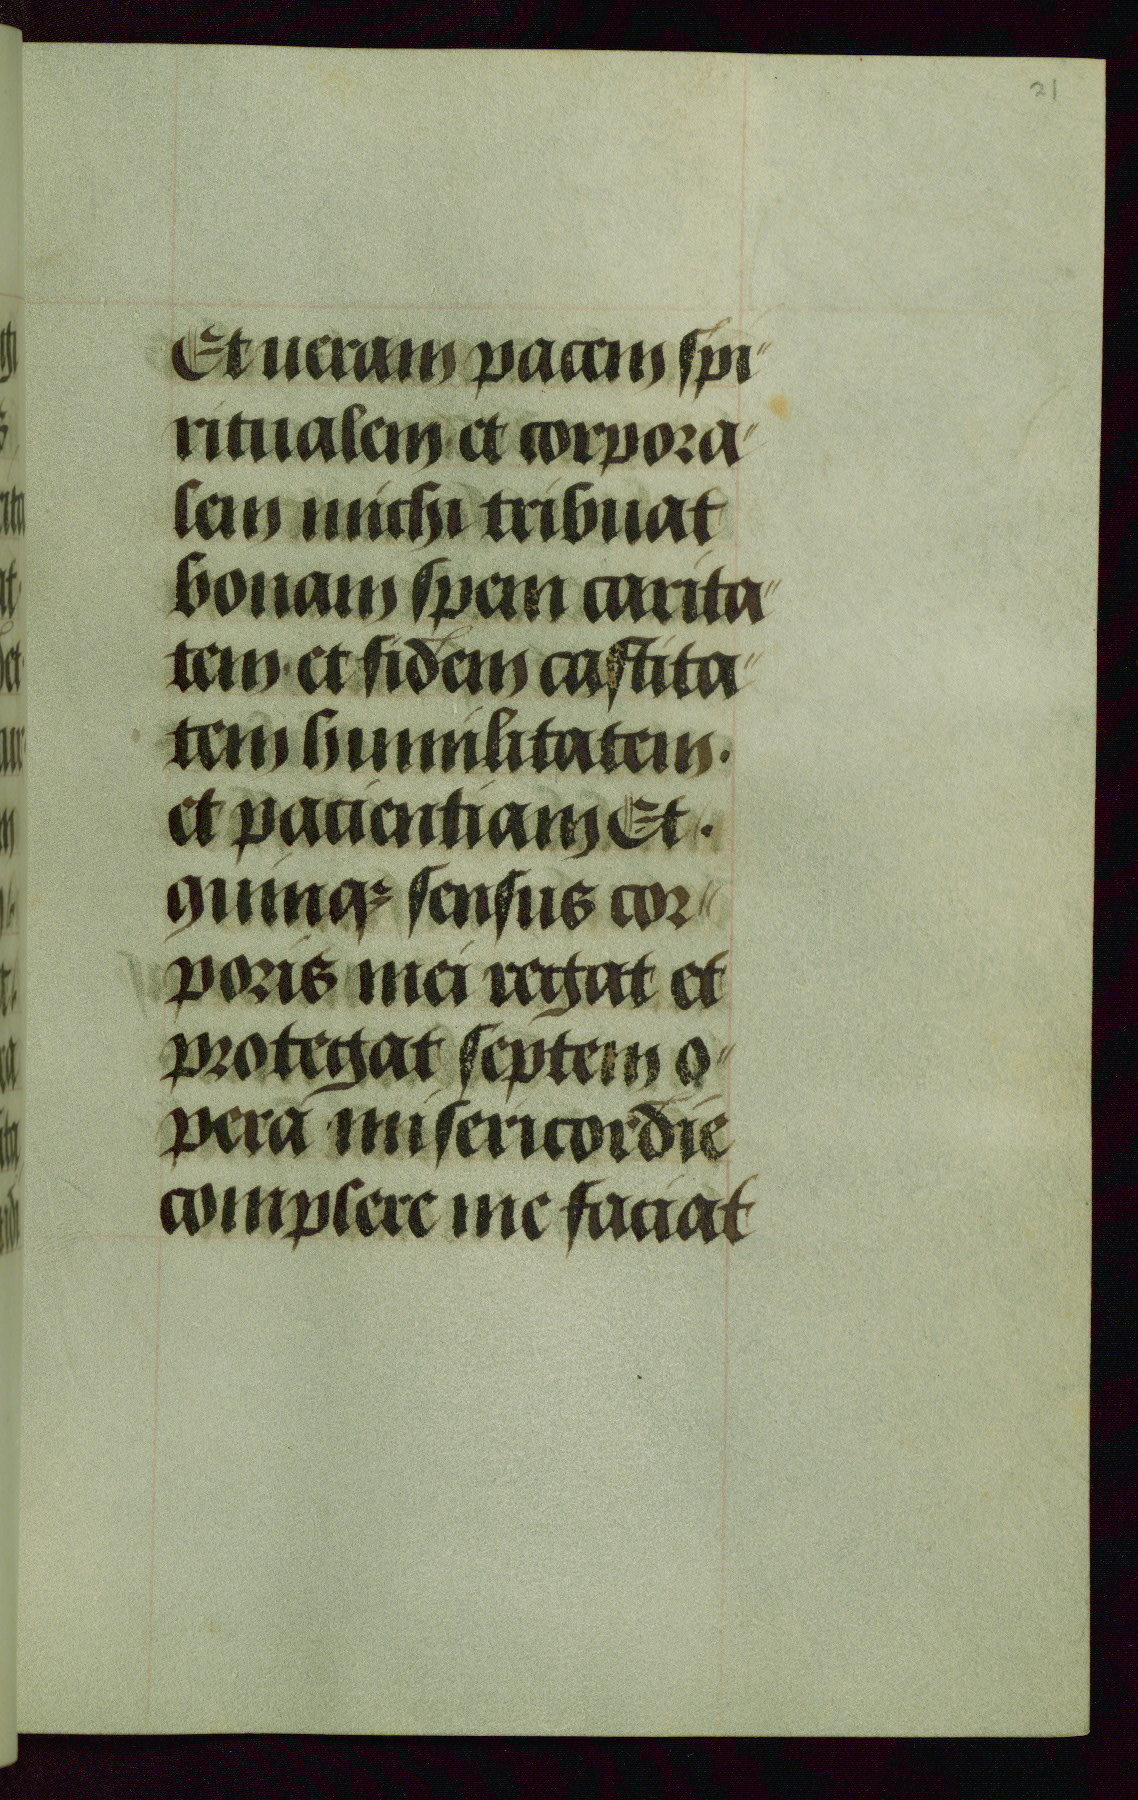 21
Et ueram pacem spi"
ritualem et corpora"
lem michi tribuat
bonam spem carita"
tem· et fidem castita"
tem humilitatem·
et pacientiam Et ·
quinqȝ sensus cor"
poris mei regat et
protegat septem o"
pera misericordie
complere me faciat